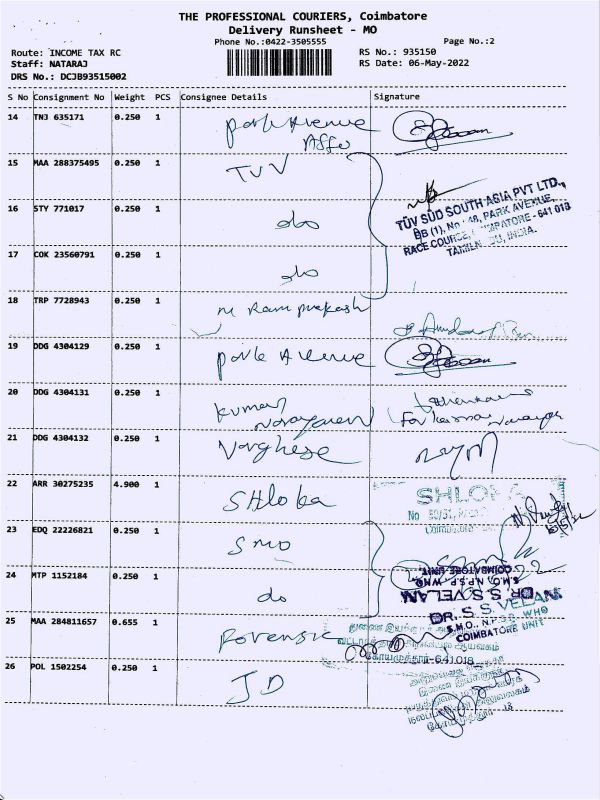 THE PROFESSIONAL COURIERS, Coimbatore
Delivery Runsheet - MO
Phone No.:0422-3505555
Page No.:2
Route: INCOME TAX RC
RS No.: 935150
Staff: NATARAJ
RS Date: 06-May-2022
DRS No.: DCJB93515002
S No Consignment No Weight PCS Consignee Details Signature
14 TNJ 635171 0.250 1 Park Avenue
15 MAA 288375495 0.250 1 TUV
TÜV SÜD SOUTH ASIA PVT LTD.,
BB (1), No : 48, PARK AVENUE,
RACE COURSE, COIMBATORE - 641 018
TAMILNADU, INDIA.
16 STY 771017 0.250 1 do
17 COK 23560791 0.250 1 do
18 TRP 7728943 0.250 1 M Ram prakash
19 DDG 4304129 0.250 1 park Avenue
20 DDG 4304131 0.250 1 Kumar
Narayanan
21 DDG 4304132 0.250 1 Varghese
22 ARR 30275235 4.900 1 SHloka
SHLOKA
23 EDQ 22226821 0.250 1 SMO
24 MTP 1152184 0.250 1 do
S.M.O., N.P.S.P., WHO
COIMBATORE UNIT
DR. S. S. VELAN
DR. S. S. VELAN
S.M.O., N.P.S.P., WHO
COIMBATORE UNIT
25 MAA 284811657 0.655 1 Forensic
641 018
26 POL 1502254 0.250 1 JD